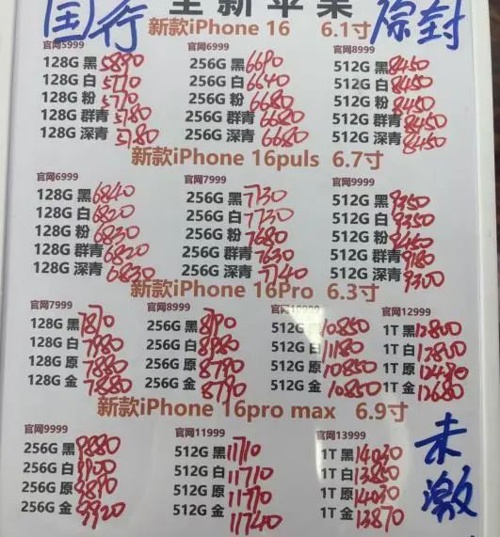 国行 全新苹果 原封
新款iPhone 16 6.1寸
官网5999 官网6999 官网8999
128G 黑 5890 256G 黑 6690 512G 黑 8450
128G 白 5770 256G 白 6640 512G 白 8450
128G 粉 5770 256G 粉 6680 512G 粉 8450
128G 群青 5780 256G 群青 6680 512G 群青 8450
128G 深青 5780 256G 深青 6680 512G 深青 8450
新款iPhone 16puls 6.7寸
官网6999 官网7999 官网9999
128G 黑 6840 256G 黑 7730 512G 黑 9350
128G 白 6820 256G 白 7730 512G 白 9350
128G 粉 6830 256G 粉 7680 512G 粉 9450
128G 群青 6820 256G 群青 7630 512G 群青 9180
128G 深青 6830 256G 深青 7740 512G 深青 9300
新款iPhone 16Pro 6.3寸
官网7999 官网8999 官网12999
128G 黑 7870 256G 黑 8790 512G 黑 10850 1T 黑 12800
128G 白 7980 256G 白 8980 512G 白 11180 1T 白 12800
128G 原 7880 256G 原 8790 512G 原 10850 1T 原
128G 金 7880 256G 金 8790 512G 金 10850 1T 金 12680
新款iPhone 16pro max 6.9寸
官网9999 官网11999 官网13999
256G 黑 9880 512G 黑 11710 1T 黑 14030
256G 白 512G 白 11710 1T 白 13850
256G 原 9890 512G 原 11770 1T 原 14030
256G 金 9920 512G 金 11740 1T 金 13870
未激